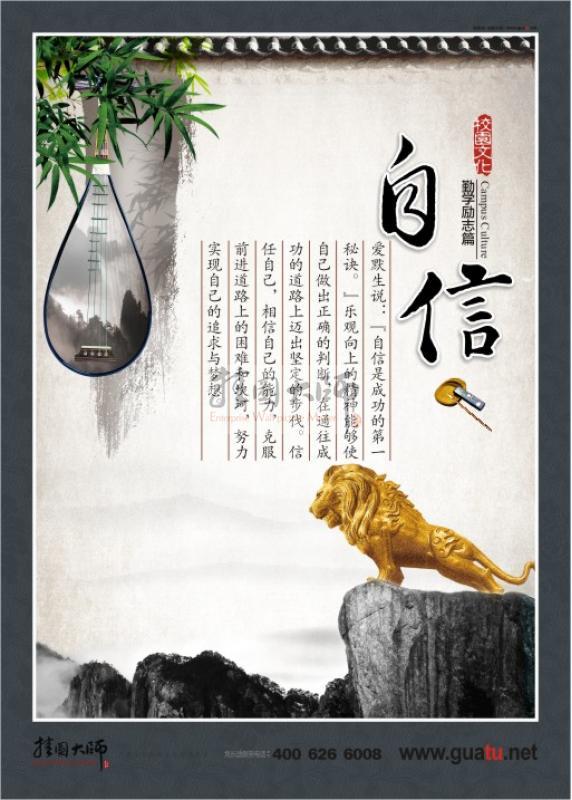 校园文化
Campus Culture
勤学励志篇
自信
爱默生说：『自信是成功的第一
秘诀。』乐观向上的精神能够使
自己做出正确的判断，在通往成
功的道路上迈出坚定的步伐。信
任自己，相信自己的能力，克服
前进道路上的困难和坎坷，努力
实现自己的追求与梦想
挂图大师
挂图大师
400 626 6008
www.guatu.net